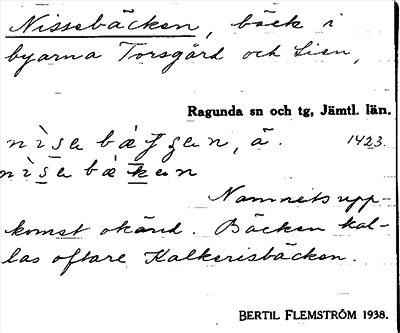 Nissebäcken, bäck i
byarna Torsgård och Lien,
Ragunda sn och tg, Jämtl. län.
1423.
Namnets upp-
komst okänd. Bäcken kal-
las oftare Kalkerisbäcken.
BERTIL FLEMSTRÖM 1938.